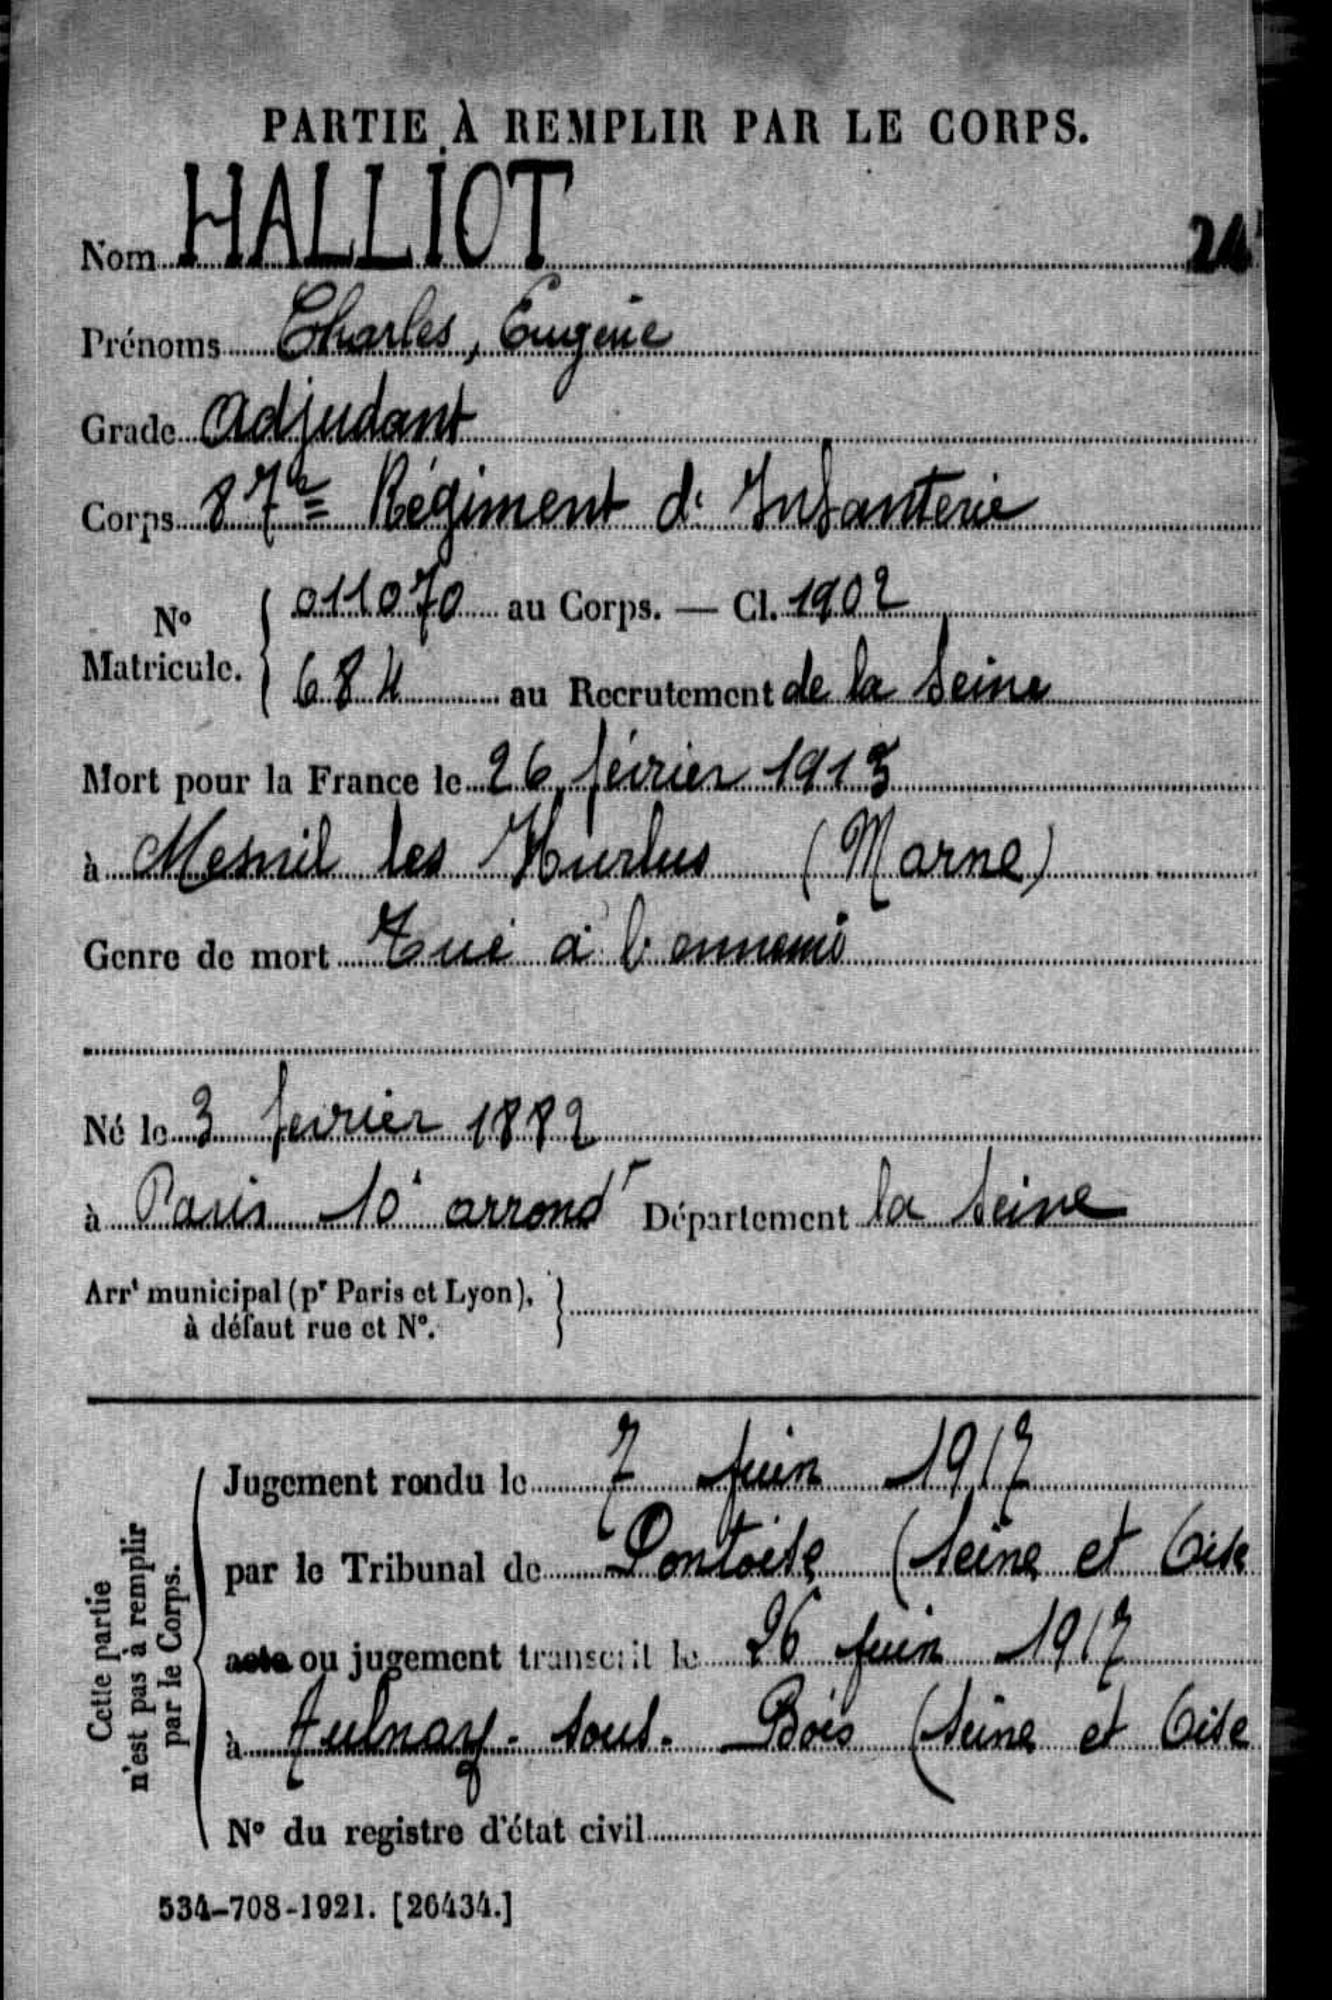 PARTIE À REMPLIR PAR LE CORPS.
Nom HALLIOT 24
Prénoms Charles, Eugène
Grade Adjudant
Corps 87e Régiment d'Infanterie
No Matricule. { 011070 au Corps. — Cl. 1902
684 au Recrutement de la Seine
Mort pour la France le 26 février 1915
à Mesnil les Hurlus (Marne)
Genre de mort Tué à l'ennemi
Né le 3 février 1882
à Paris 10e arrondt Département la Seine
Arrt municipal (pr Paris et Lyon), à défaut rue et No. }
Cette partie n'est pas à remplir par le Corps.
Jugement rendu le 7 Juin 1917
par le Tribunal de Pontoise (Seine et Oise
acte ou jugement transcrit le 26 Juin 1917
à Aulnay-sous-Bois (Seine et Oise
No du registre d'état civil
534-708-1921. [26434.]